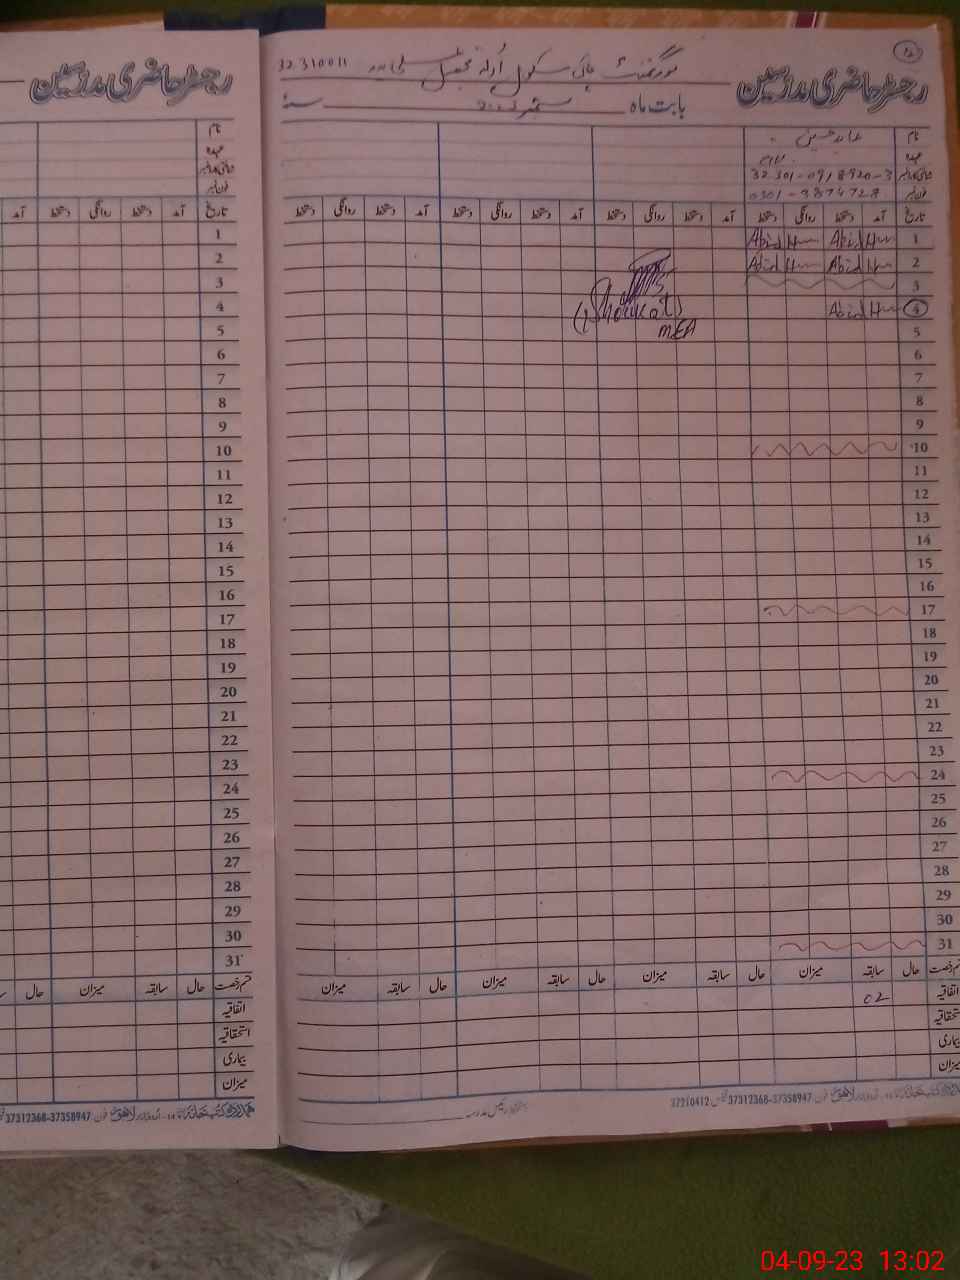 رجسٹر حاضری مدرسین
گورنمنٹ ہائی سکول 32310011
رجسٹر حاضری مدرسین
بابت ماہ ستمبر سنہ
نام عابد حسین
عہدہ
شناختی کارڈ نمبر 32301-0918920-3
فون نمبر 0301-3874728
تاریخ آمد دستخط روانگی دستخط آمد دستخط روانگی دستخط آمد دستخط روانگی دستخط
1 Abid H Abid H
2 Abid H Abid H
3
4 Abid H
(Shoukat)
MEA
5
6
7
8
9
10
11
12
13
14
15
16
17
18
19
20
21
22
23
24
25
26
27
28
29
30
31
قسم رخصت حال سابقہ میزان حال سابقہ میزان حال سابقہ میزان
اتفاقیہ 02
استحقاقیہ
بیماری
میزان
دستخط رئیس مدرسہ
اردو بازار لاہور فون 37312368-37358947 فیکس 37210412
نام
عہدہ
شناختی کارڈ نمبر
فون نمبر
تاریخ آمد دستخط روانگی دستخط آمد
1
2
3
4
5
6
7
8
9
10
11
12
13
14
15
16
17
18
19
20
21
22
23
24
25
26
27
28
29
30
31
قسم رخصت حال سابقہ میزان حال
اتفاقیہ
استحقاقیہ
بیماری
میزان
اردو بازار لاہور فون 37312368-37358947
04-09-23 13:02